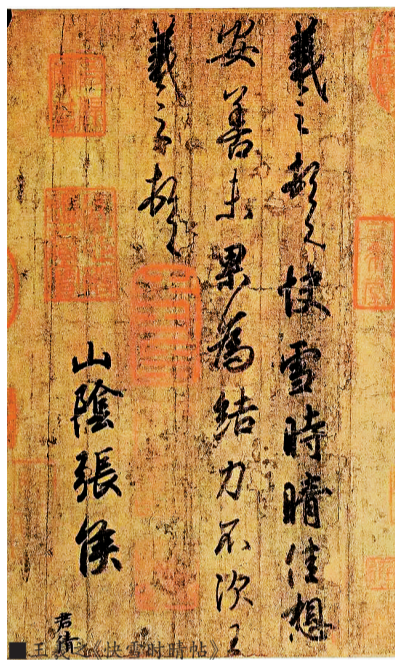 羲之頓首快雪時晴佳想
安善未果為結力不次王
羲之頓首
山陰張侯
君倩
王羲之《快雪时晴帖》